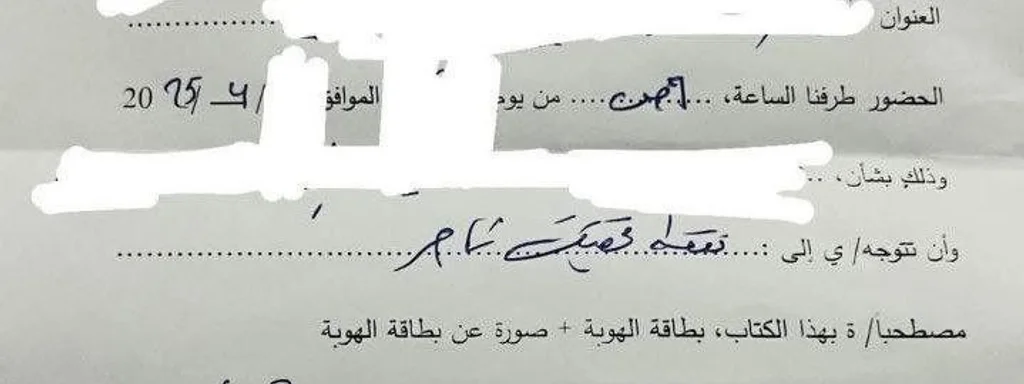 العنوان
الحضور طرفنا الساعة، .... من يوم الموافق / 4 / 2025
وذلك بشأن، ..
وأن تتوجه/ ي إلى : نقطة تفتيش
مصطحبا/ ة بهذا الكتاب، بطاقة الهوية + صورة عن بطاقة الهوية